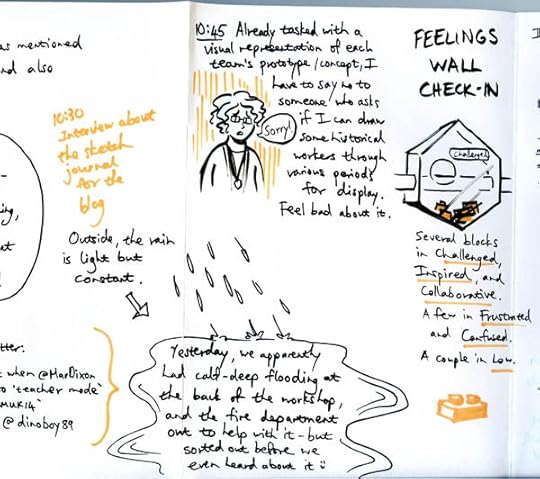 as mentioned
nd also
10:30
Interview about
the sketch
journal
for the
blog
Outside, the rain
is light but
constant.
10:45 Already tasked with a
visual representation of each
team's prototype/concept, I
have to say no to
someone who asks
if I can draw
some historical
workers through
various periods
for display.
Feel bad about it.
Sorry!
Yesterday, we apparently
had calf-deep flooding at
the back of the workshop,
and the fire department
out to help with it - but
sorted out before we
even heard about it :)
FEELINGS
WALL
CHECK-IN
Challenged
Several blocks
in Challenged,
Inspired, and
Collaborative.
A few in Frustrated
and Confused.
A couple in Low.
ing,
at
tter:
t when @MarDixon
to 'teacher mode'
MMUK14"
@dinoboy89